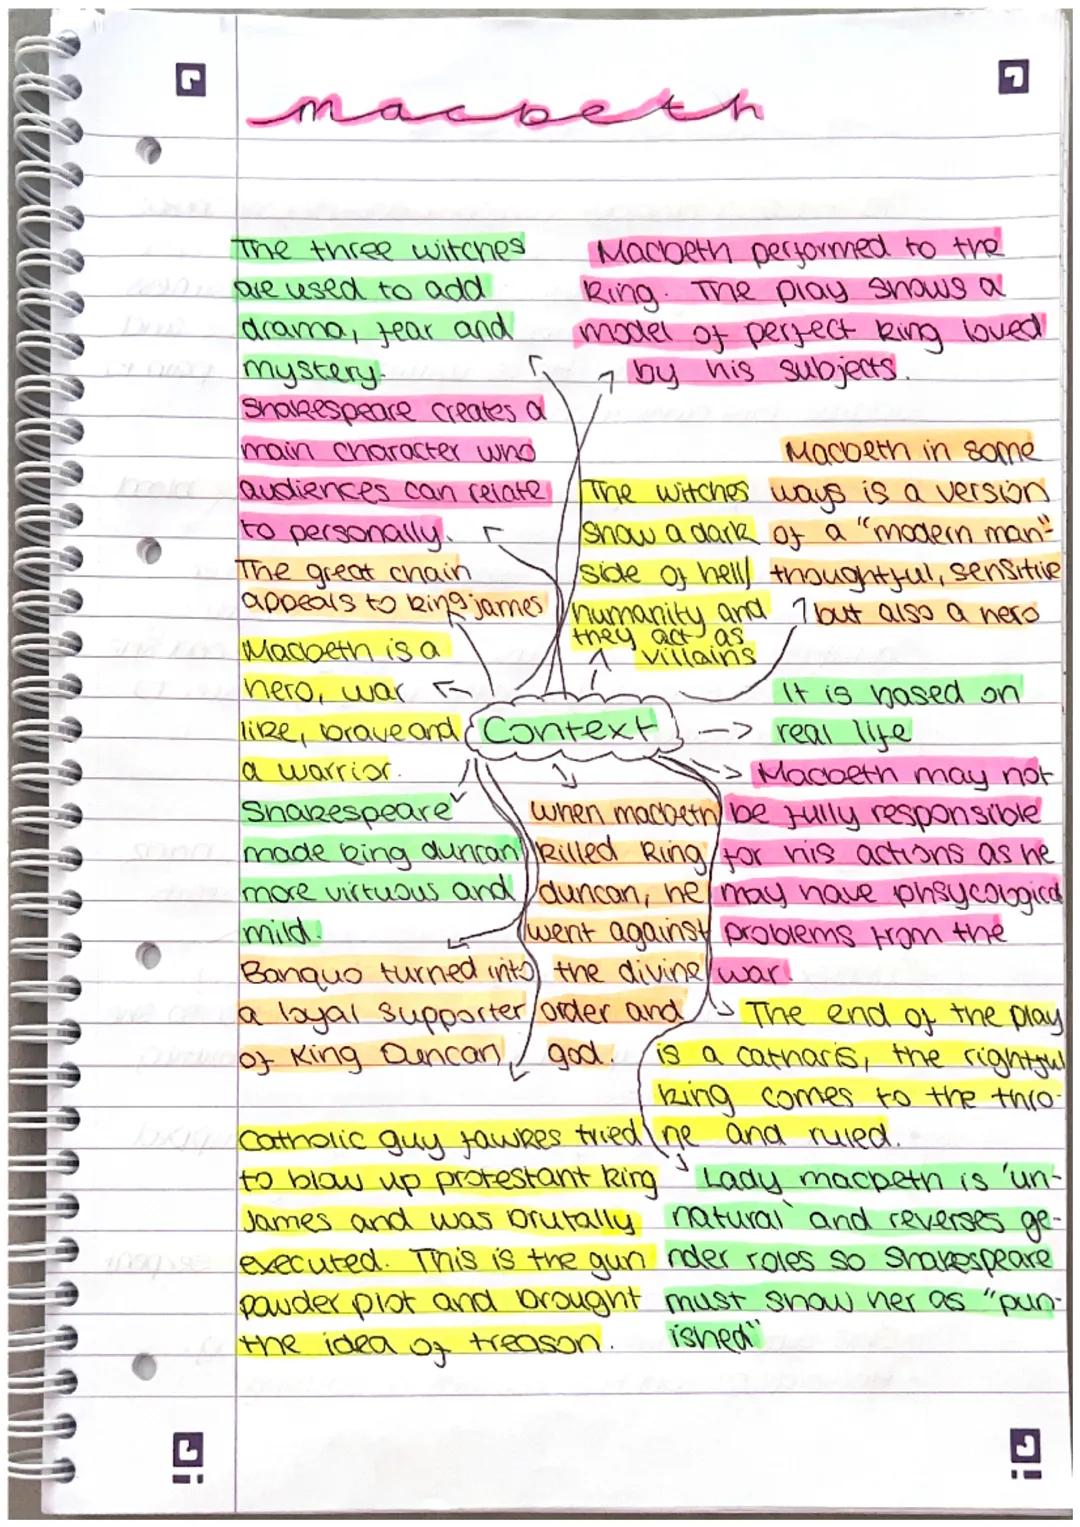 macbeth
The three witches
are used to add
drama, fear and
mystery.
Macbeth performed to the
king. The play shows a
model of perfect king loved
by his subjects.
Shakespeare creates a
main character who
audiences can relate
to personally.
Macbeth in some
ways is a version
of a "modern man"
thoughtful, sensitie
but also a hero
The witches
show a dark
side of hell/
humanity and
they act as
villains
The great chain
appeals to king james
Macbeth is a
hero, war
like, brave and
a warrior.
Context
It is based on
real life
Macbeth may not
be fully responsible
for his actions as he
may have phsycological
problems from the
war.
Shakespeare
made king duncan
more virtuous and
mild.
when macbeth
killed king
duncan, he
went against
the divine
order and
god.
Banquo turned into
a loyal supporter
of King Duncan
The end of the play
is a catharis, the rightful
king comes to the thro-
ne and ruled.
Catholic guy fawkes tried
to blow up protestant king
James and was brutally
executed. This is the gun
powder plot and brought
the idea of treason.
Lady macbeth is 'un-
natural' and reverses ge-
nder roles so Shakespeare
must show her as "pun-
ished"